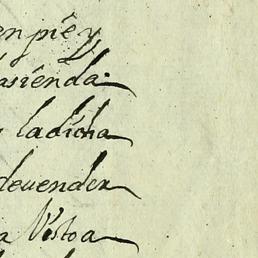 en pie y
asienda
ladicha
devender
a Vistoa